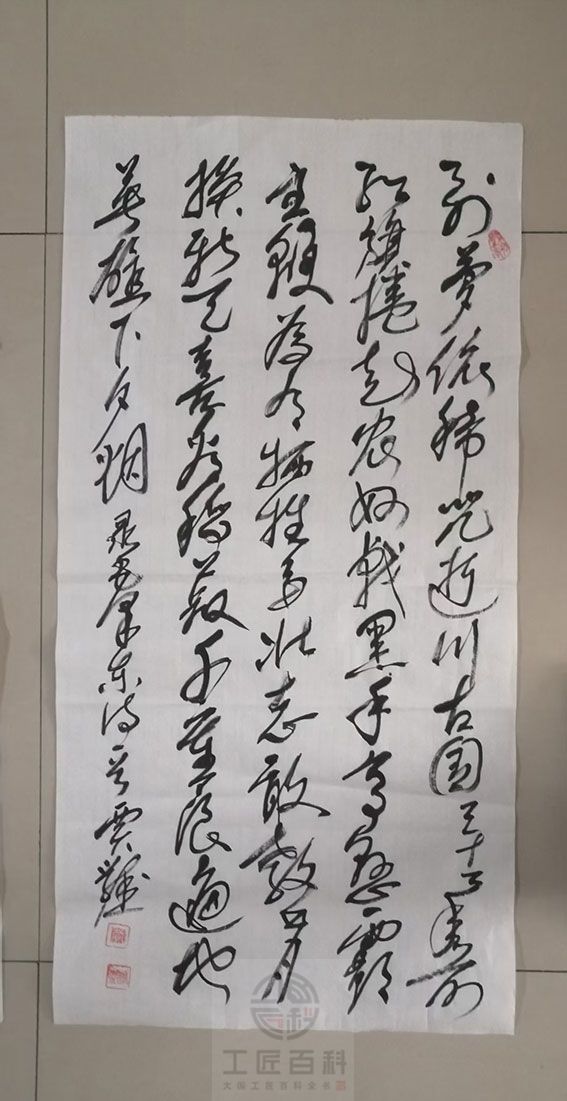 别夢依稀咒逝川古国三十二年前
红旗捲起农奴戟黑手高悬霸
主鞭为有牺牲多壮志敢教日月
换新天喜看稻菽千重浪遍地
英雄下夕烟 录毛泽东诗
工匠百科
大国工匠百科全书